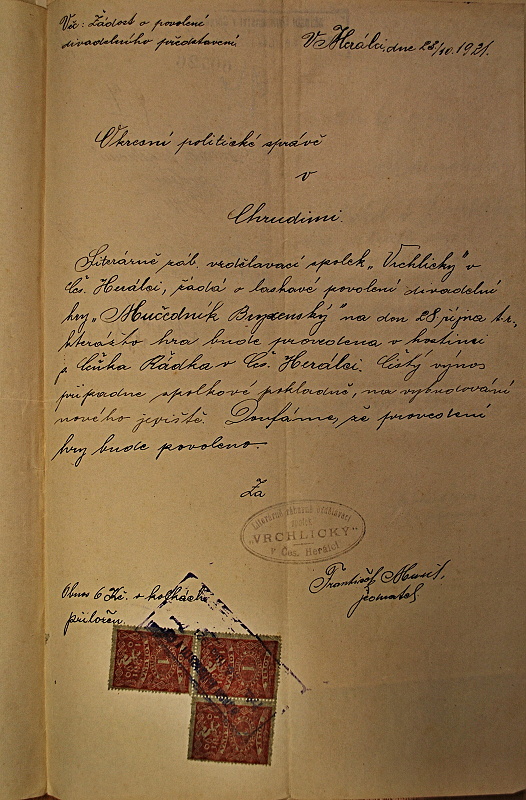 Věc: Žádost o povolení
divadelního představení.
V Herálci, dne 23/10. 1921.
Okresní politické správě
v
Chrudimi.
Literárně záb. vzdělavací spolek „Vrchlický" v
Čes. Herálci, žádá o laskavé povolení divadelní
hry „Mučedník Brixenský" na den 28. října t.r.,
kterážto hra bude provedena v hostinci
p. Čeňka Rádka v Čes. Herálci. Čistý výnos
připadne spolkové pokladně, na vybudování
nového jeviště. Doufáme, že provedení
hry bude povoleno.
Za
Literárně zábavně vzdělavací
spolek
„VRCHLICKÝ"
v Čes. Herálci
František
jednatel
Obnos 6 Kč. v kolkách
přiložen.
1
1